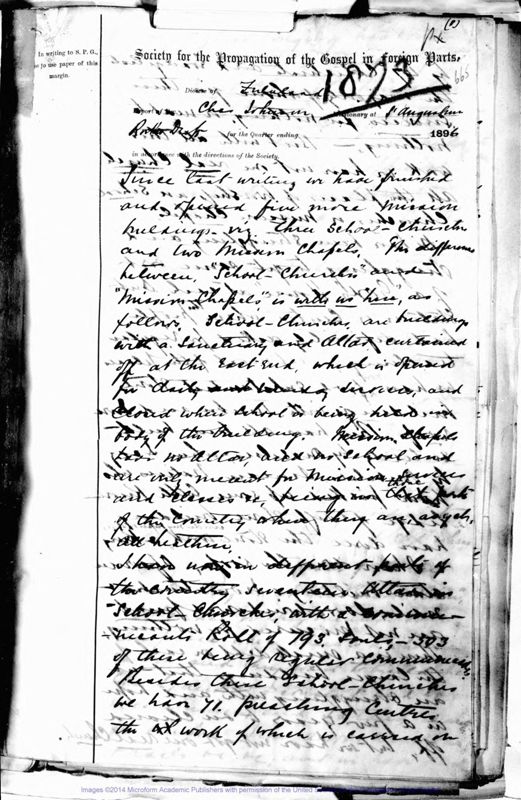 In writing to S. P. G.,
to use paper of this
margin.
Society for the Propagation of the Gospel in Foreign Parts.
1873
Diocese of Zululand
Chas. Johnson, Missionary at St Augustine
Rorkes Drift for the Quarter ending 1896
in accordance with the directions of the Society.
Since last writing we have finished
and opened five more Mission
buildings viz. three School-Churches
and two Mission Chapels. The difference
between "School-Churches and
"Mission-Chapels" is with us here, as
follows, School-Churches, are buildings
with a Sanctuary and Altar curtained
off at the East End, which is opened
for daily and Sunday Services, and
closed when School is being held in
body of the building. Mission Chapels
have no Altar, and no School and
are only meant for Mission Services
and Classes &c, being in parts
of the Country where they are, as yet,
all heathen.
I have now in different parts of
the Country seventeen Altars in
School Churches, with a
Roll of 793 Souls, - 393
of these being regular Communicants
Besides these School-Churches
we have 71. preaching Centres
the work of which is carried on
Images ©2014 Microform Academic Publishers with permission of the United